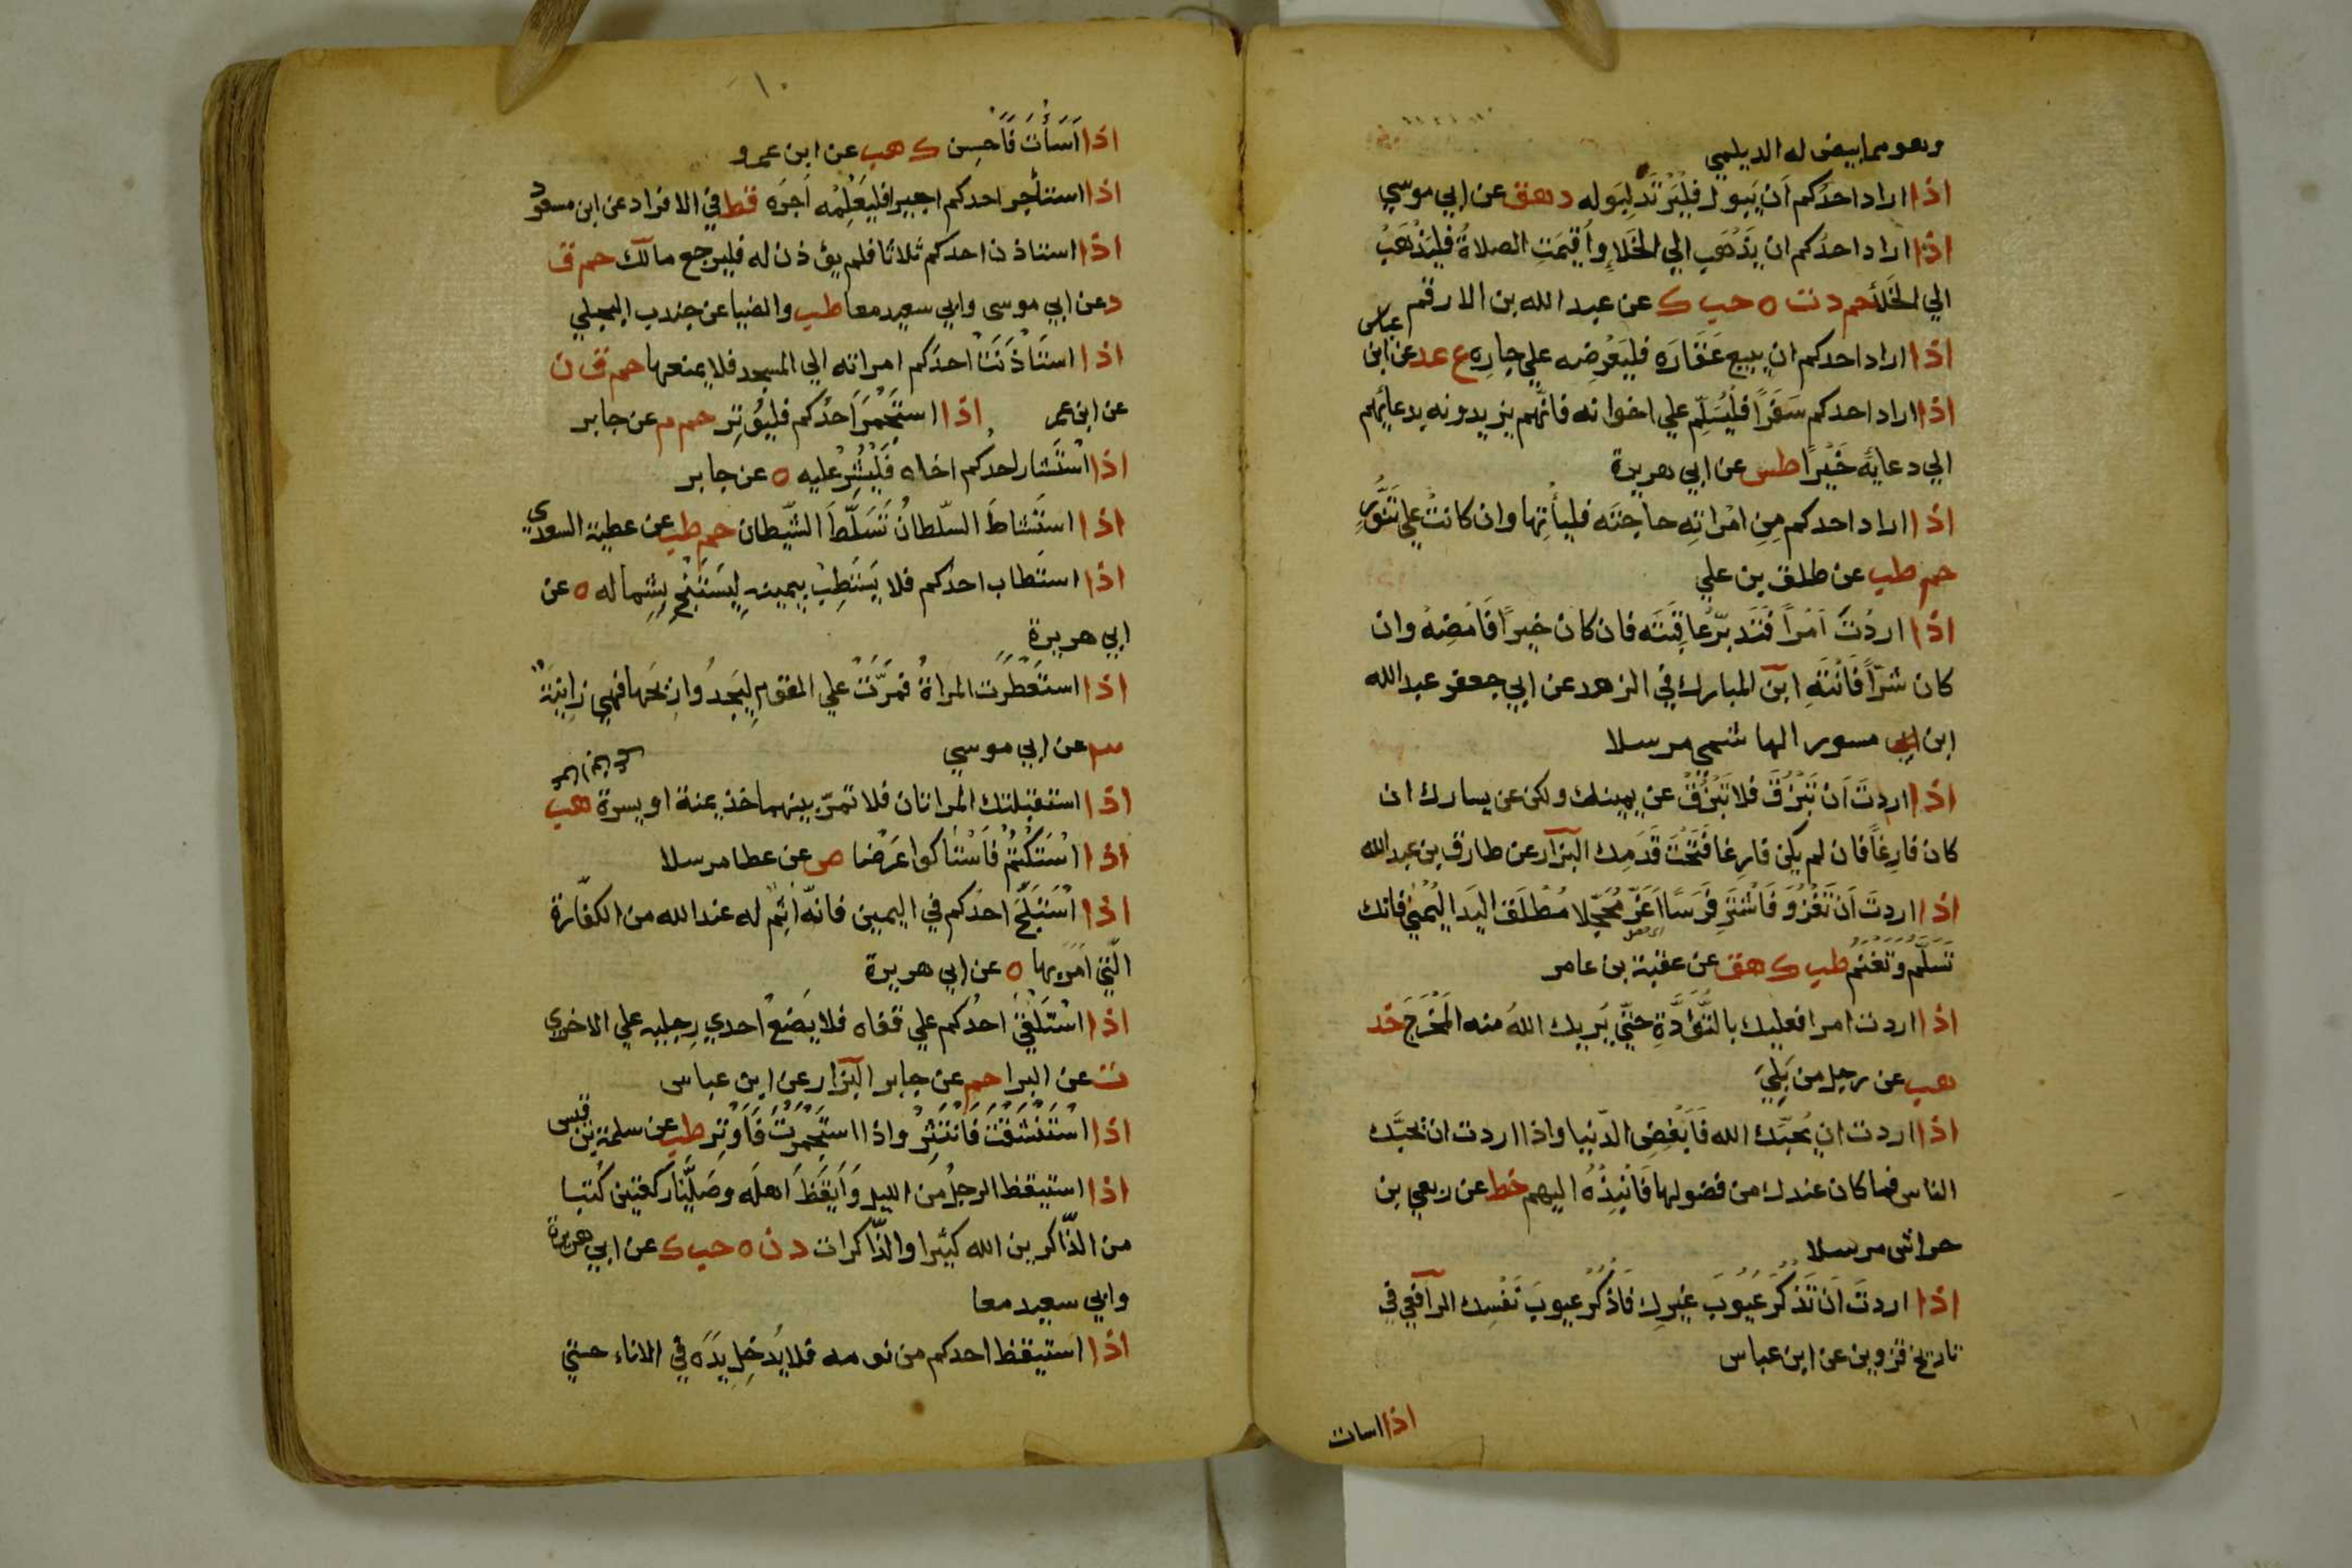 وهو مما بيض له الديلمي
اذا اراد احدُكم اَن يَبول فليَرْتَد لِبَوله د هق عن ابي موسي
اذا اراد احدُكم ان يَذْهَب الي الخَلاءِ واُقيمَتِ الصلاةُ فليَذْهَبْ
الي الخَلأ حم د ت ه حب ك عن عبد الله بن الارقم
اذا اراد احدكم ان يبيع عَقَارَه فليَعْرِضه علي جارِه ع عد عن ابن عباس
اذا اراد احدكم سَفَرًا فليُسَلِّم علي اخوانه فانّهم يزيدونه بدعائهم
الي دعايَه خَيْرًا طس عن ابي هريرة
اذا اراد احدكم مِنِ امْراَتِه حاجتَه فليأتِها وان كانتْ علي تَنُّورٍ
حم طب عن طلق بن علي
اذا اردْتَ اَمْراً فَتَدَبَّرْ عاقِبَتَه فان كان خيراً فَاَمْضِهْ وان
كان شرّاً فَانْتَهِ ابن المبارك في الزهد عن ابي جعفر عبد الله
ابن ابي مسور الهاشمي مرسلا
اذا اردتَ اَنْ تَبْزُقَ فلا تَبْزُقْ عن يمينك ولكن عن يسارك ان
كان فارِغًا فان لم يكن فارِغا فَتَحْتَ قَدَمِك البزار عن طارق بن عبد الله
اذا اردتَ اَنْ تَغْزُوَ فَاشْتَرِ فَرَسًا اَغَرّ مُحَجّلا مُطْلَقَ اليَدِ اليُمْنٰي فانك
تَسْلَمُ وتَغْنَمُ طب ك هق عن عقبة بن عامر
اذا اردت امرا فعليك بالتُّؤَدَةِ حتّي يُريك اللهُ منه المَخْرَجَ خد
هب عن رجل من بَلِيّ
اذا اردت ان يُحبَّك الله فَاَبْغِضِ الدّنيا واذا اردت ان يحبَّك
الناس فما كان عندك من فضولها فَانْبِذْهُ اليهم خط عن ربعي بن
حراش مرسلا
اذا اردتَ اَنْ تَذْكُرَ عُيُوبَ غيرِك فَاذْكُرْ عيوبَ نَفْسِك الرافعي في
تاريخ قزوين عن ابن عباس
اذا اسات
١٠
اذا اَسَأتَ فَاَحسِن ك هب عن ابن عمرو
اذا استأجر احدكم اجيرا فليُعْلِمْه اَجرَه قط في الافراد عن ابن مسعود
اذا استاذن احدكم ثلاثا فلم يؤذن له فليرجع مالك حم ق
د عن ابي موسى وابي سعيد معا طب والضيا عن جندب البجلي
اذا استَاْذَنَتْ احدَكم امراته الي المسجد فلا يمنعها حم ق ن
عن ابن عمر اذا استَجْمَرَ اَحدُكم فليُوتِر حم م عن جابر
اذا اسْتَشار احدُكم اخاه فَلْيُشِرْ عليه ه عن جابر
اذا استَشاطَ السّلطانُ تَسَلَّطَ الشّيطان حم طب عن عطية السعدي
اذا استطاب احدُكم فلا يَسْتَطِبْ بيمينه لِيَسْتَنْجِ بِشِماله ه عن
ابي هريرة
اذا استَعْطَرَت المراةُ فمرّتْ علي القومِ لِيَجدُوا رِيحَها فهي زانِيَة
٣ عن ابي موسي
اذا استقبلتك المراتان فلا تمرّ بينهما خذ يمنة او يسرة هب
اذا اسْتَكْتُمْ فَاسْتاكوا عَرْضا ص عن عطا مرسلا
اذا اسْتَلَجَّ احدُكم في اليمين فانّه اٰثَمُ له عند الله من الكفّارة
الّتي اُمر بها ه عن ابي هريرة
اذا اسْتَلْقٰي احدُكم علي قفاه فلا يَضَعْ اِحدي رِجليه علي الاخري
ت عن البرا حم عن جابر البزار عن ابن عباس
اذا اسْتَنْشَقْتَ فَانْتَثِرْ واذا استَجْمَرتَ فَاَوْتِر طب عن سلمة بن قيس
اذا استيقظ الرجلُ من الليل وَاَيقَظَ اَهله وصَلَّيَا ركعتين كُتبا
من الذّاكرين الله كثيرا والذّاكرات د ن ه حب ك عن ابي هريرة
وابي سعيد معا
اذا استيقظ احدكم من نومه فلا يُدخِل يدَه في الاناء حتي